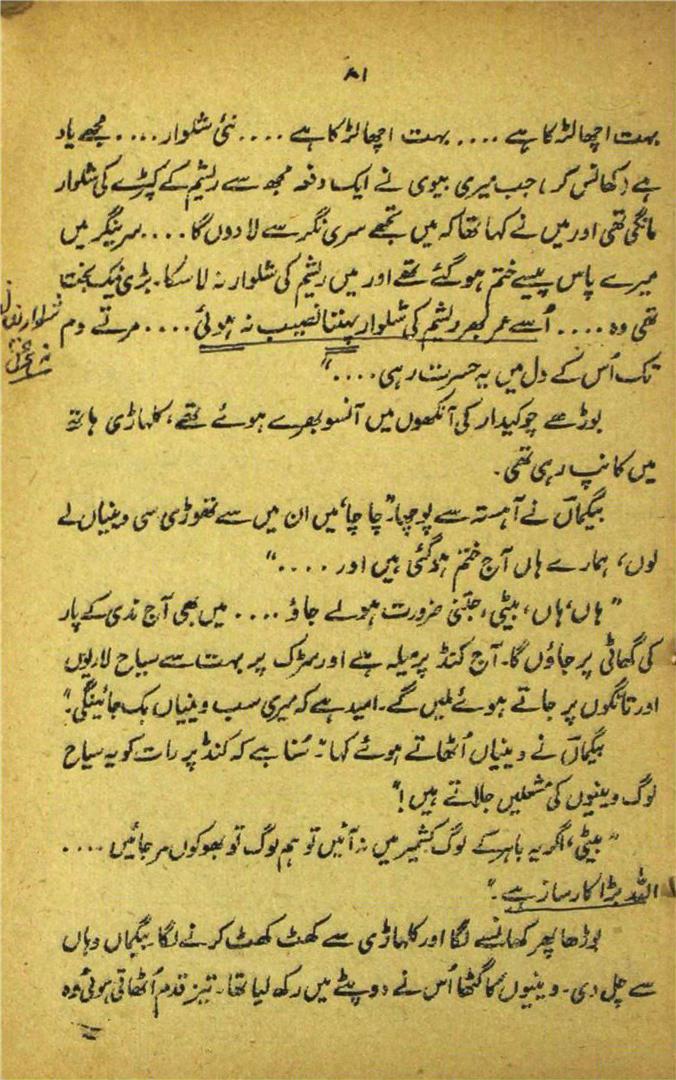 ۸۱
بہت اچھا لڑکا ہے .... بہت اچھا لڑکا ہے .... نئی شلوار .... مجھے یاد
ہے (کھانس کر) جب میری بیوی نے ایک دفعہ مجھ سے ریشم کے کپڑے کی شلوار
مانگی تھی اور میں نے کہا تھا کہ میں تجھے سری نگر سے لا دوں گا .... سرینگر میں
میرے پاس پیسے ختم ہو گئے تھے اور میں ریشم کی شلوار نہ لا سکا۔ بڑی نیک بخت
تھی وہ .... اُسے عمر بھر ریشم کی شلوار پہننا نصیب نہ ہوئی .... مرتے دم
تک اُس کے دل میں یہ حسرت رہی ....“
بوڑھے چوکیدار کی آنکھوں میں آنسو بھرے ہوئے تھے، کلہاڑی ہاتھ
میں کانپ رہی تھی۔
بیگماں نے آہستہ سے پوچھا ”چاچا، میں ان میں سے تھوڑی سی وینیاں لے
لوں، ہمارے ہاں آج ختم ہو گئی ہیں اور ....“
”ہاں، ہاں، بیٹی، جتنی ضرورت ہو لے جاؤ .... میں بھی آج ندی کے پار
کی گھاٹی پر جاؤں گا۔ آج کنڈ پر میلہ ہے اور سڑک پر بہت سے سیاح لاریوں
اور تانگوں پر جاتے ہوئے ملیں گے۔ امید ہے کہ میری سب وینیاں بک جائینگی۔“
بیگماں نے وینیاں اُٹھاتے ہوئے کہا ”سُنا ہے کہ کنڈ پر رات کو یہ سیاح
لوگ وینیوں کی مشعلیں جلاتے ہیں!“
”بیٹی، اگر یہ باہر کے لوگ کشمیر میں نہ آئیں تو ہم لوگ تو بھوکوں مر جائیں ....
اللہ بڑا کارساز ہے۔“
بوڑھا پھر کھانسنے لگا اور کلہاڑی سے کھٹ کھٹ کرنے لگا بیگماں وہاں
سے چل دی۔ وینیوں کا گٹھا اُس نے دوپٹے میں رکھ لیا تھا۔ تیز قدم اُٹھاتی ہوئی وہ
شلوار